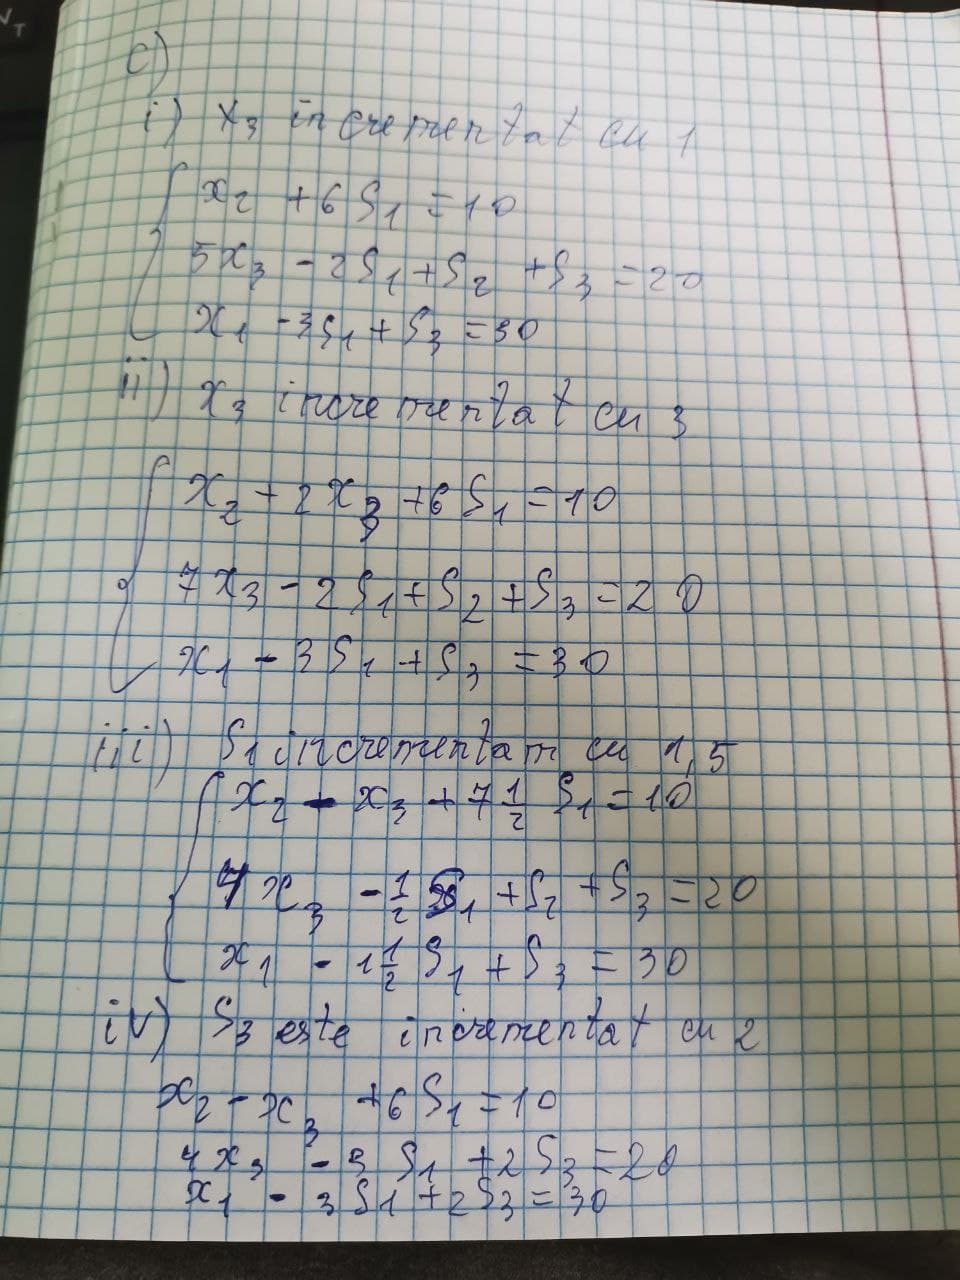 c)
i) x₃ incrementat cu 1
x₂ + 6S₁ = 10
5x₃ - 2S₁ + S₂ + S₃ = 20
x₁ - 3S₁ + S₃ = 30
ii) x₃ incrementat cu 3
x₂ + 2x₃ + 6S₁ = 10
7x₃ - 2S₁ + S₂ + S₃ = 20
x₁ - 3S₁ + S₃ = 30
iii) S₁ incrementam cu 1,5
x₂ - x₃ + 7 1/2 S₁ = 10
4x₃ - 1/2 S₁ + S₂ + S₃ = 20
x₁ - 1 1/2 S₁ + S₃ = 30
iv) S₃ este incrementat cu 2
x₂ - x₃ + 6S₁ = 10
4x₃ - S₁ + 2S₃ = 20
x₁ - 3S₁ + 2S₃ = 30